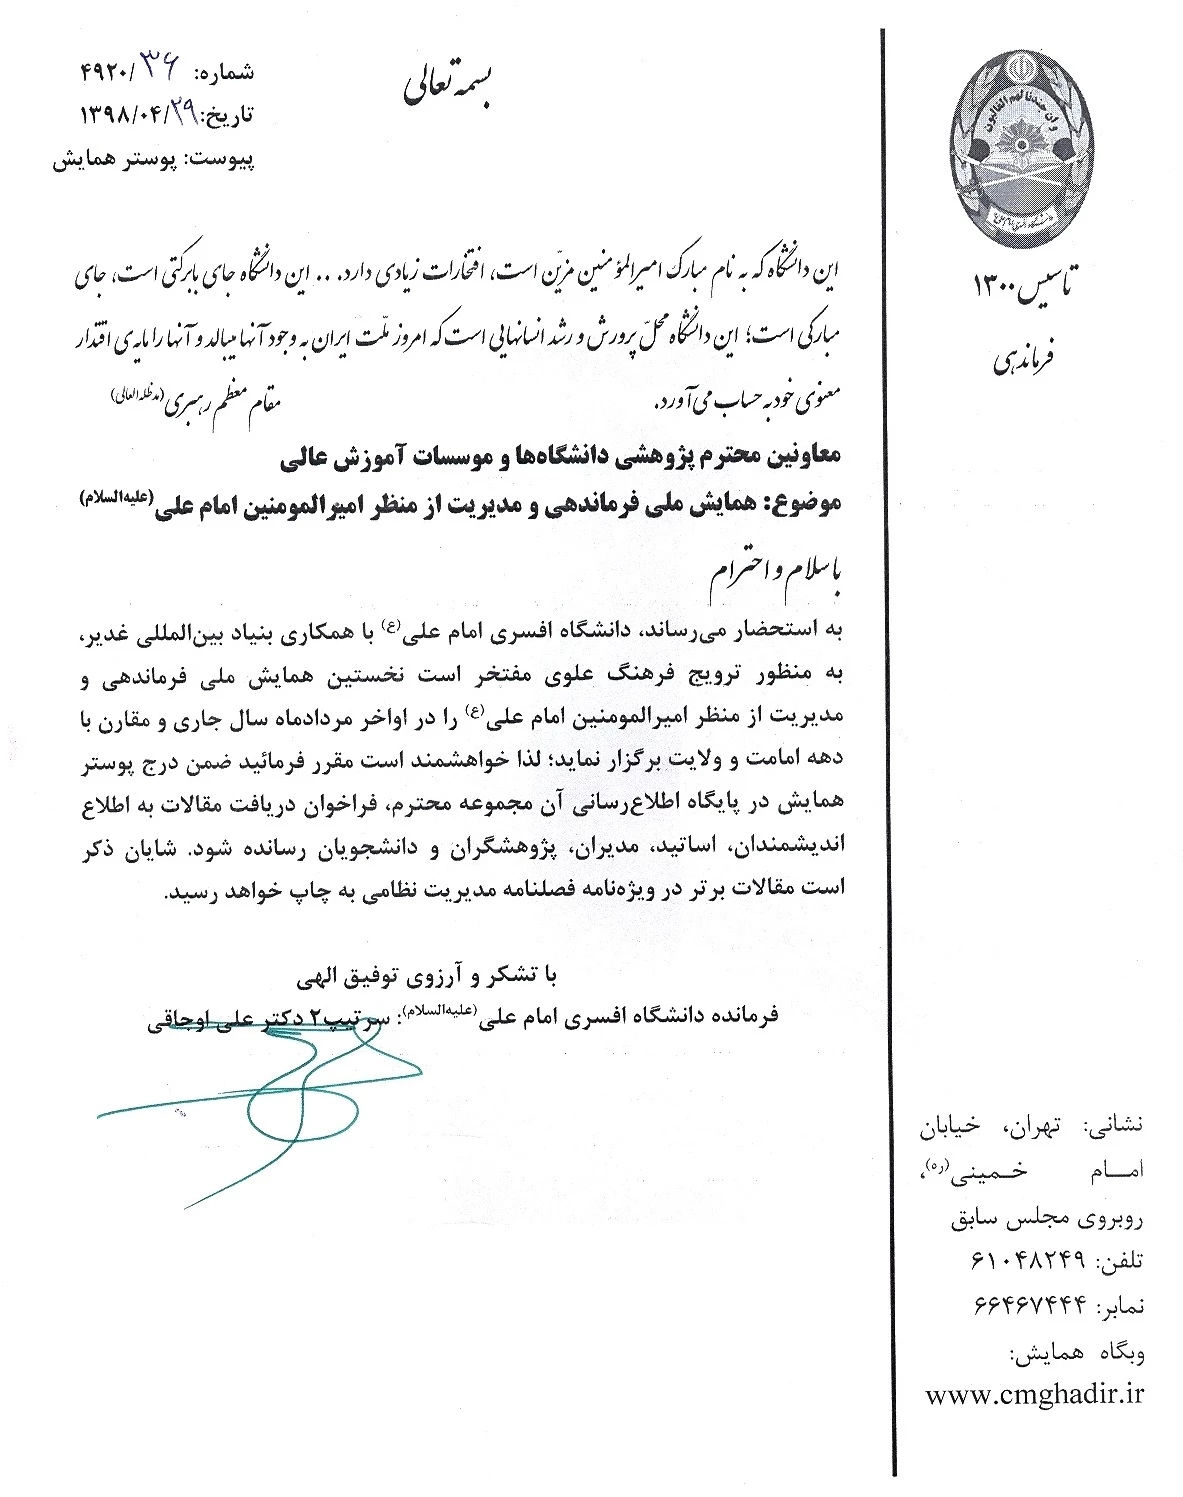 بسمه تعالی
شماره: ۴۹۲۰/۳۶
تاریخ: ۱۳۹۸/۰۴/۲۹
پیوست: پوستر همایش
و ان جندنا لهم الغالبون
تاسیس ۱۳۰۰
فرماندهی
این دانشگاه که به نام مبارک امیرالمؤمنین مزیّن است، افتخارات زیادی دارد. .. این دانشگاه جای بابرکتی است، جای
مبارکی است؛ این دانشگاه محلّ پرورش و رشد انسانهایی است که امروز ملّت ایران به وجود آنها میبالد و آنها را مایه‌ی اقتدار
معنوی خود به حساب می‌آورد. مقام معظم رهبری (مدظله العالی)
معاونین محترم پژوهشی دانشگاه‌ها و موسسات آموزش عالی
موضوع: همایش ملی فرماندهی و مدیریت از منظر امیرالمومنین امام علی (علیه‌السلام)
با سلام و احترام
به استحضار می‌رساند، دانشگاه افسری امام علی(ع) با همکاری بنیاد بین‌المللی غدیر،
به منظور ترویج فرهنگ علوی مفتخر است نخستین همایش ملی فرماندهی و
مدیریت از منظر امیرالمومنین امام علی(ع) را در اواخر مردادماه سال جاری و مقارن با
دهه امامت و ولایت برگزار نماید؛ لذا خواهشمند است مقرر فرمائید ضمن درج پوستر
همایش در پایگاه اطلاع‌رسانی آن مجموعه محترم، فراخوان دریافت مقالات به اطلاع
اندیشمندان، اساتید، مدیران، پژوهشگران و دانشجویان رسانده شود. شایان ذکر
است مقالات برتر در ویژه‌نامه فصلنامه مدیریت نظامی به چاپ خواهد رسید.
با تشکر و آرزوی توفیق الهی
فرمانده دانشگاه افسری امام علی(علیه‌السلام): سرتیپ۲ دکتر علی اوجاقی
نشانی: تهران، خیابان
امام خمینی(ره)،
روبروی مجلس سابق
تلفن: ۶۱۰۴۸۲۴۹
نمابر: ۶۶۴۶۷۴۴۴
وبگاه همایش:
www.cmghadir.ir